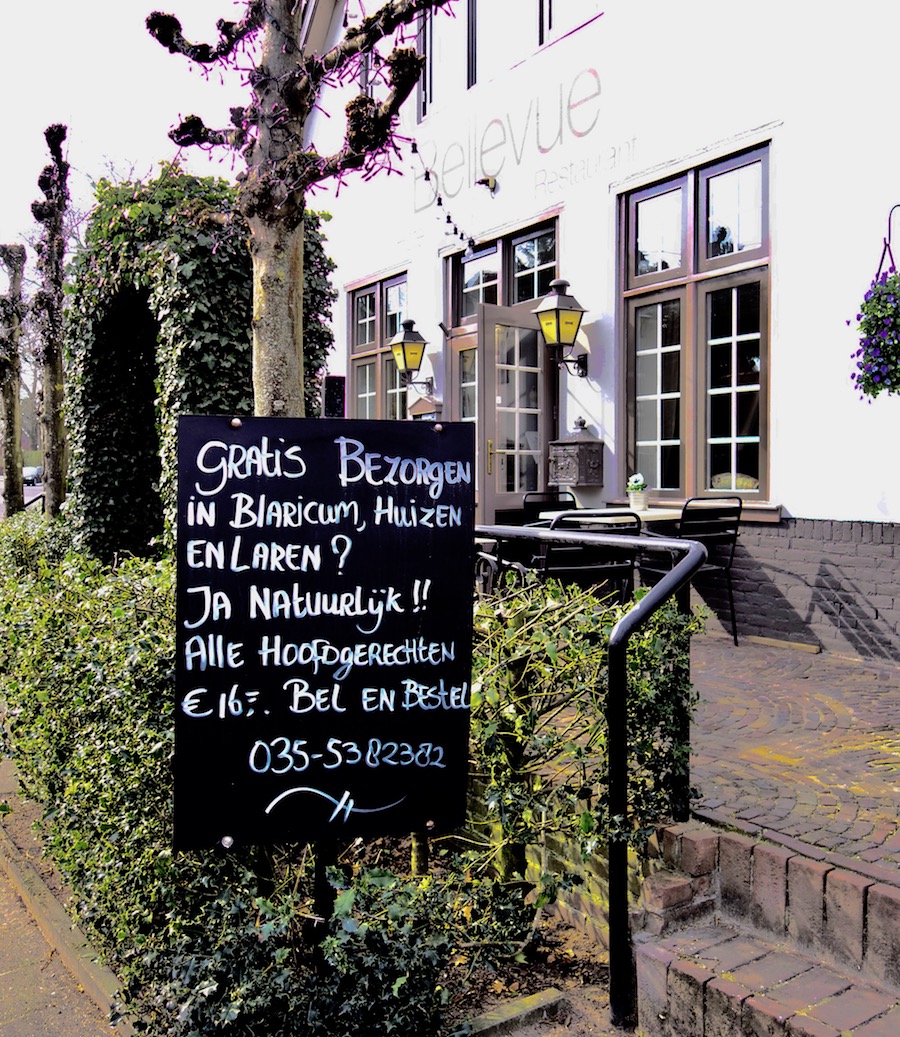 Bellevue
Restaurant
Gratis Bezorgen
in Blaricum, Huizen
en Laren ?
Ja Natuurlijk !!
Alle Hoofdgerechten
€ 16,-. Bel en Bestel
035-5382382